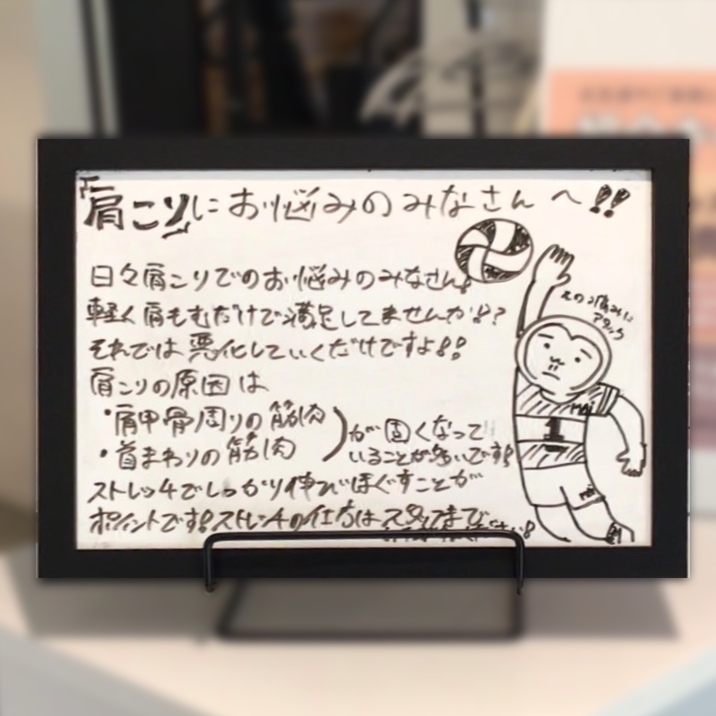 肩こりにお悩みのみなさんへ!!
日々肩こりでのお悩みのみなさん!
軽く肩もむだけで満足してませんか!?
それでは悪化していくだけですよ!!
肩こりの原因は
・肩甲骨周りの筋肉
・首まわりの筋肉
が固くなって
いることが多いです!
ストレッチでしっかり伸びほぐすことが
ポイントです!ストレッチの仕方はスタッフまで
その痛みに
アタック
1